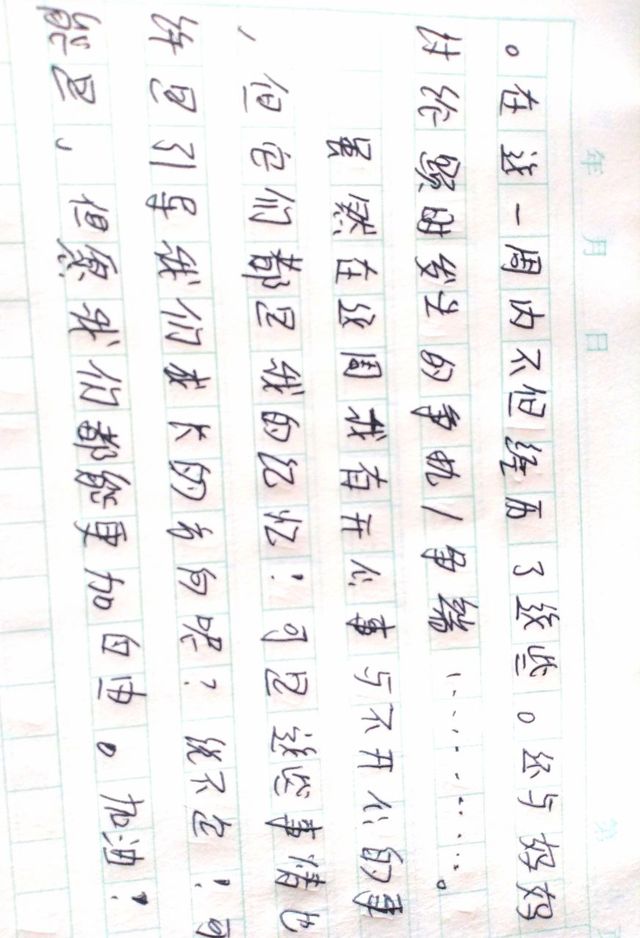 年 月 日
。在这一周内不但经历了这些。还与好妈
讲给题时发生的争执/争端…………。
虽然在这周我有开心事与不开心的事
，但它们都是我的记忆！可是这些事情也
许是引导我们成长的方向呢？说不定！可
能是，但愿我们都能更加自由。加油！